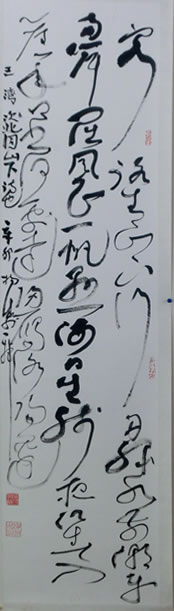 客路青山下行舟绿水前潮平
兩岸闊風正一帆懸海日生殘夜江春入
舊年鄉書何處達歸雁洛陽邊
王灣次北固山下诗 辛卯